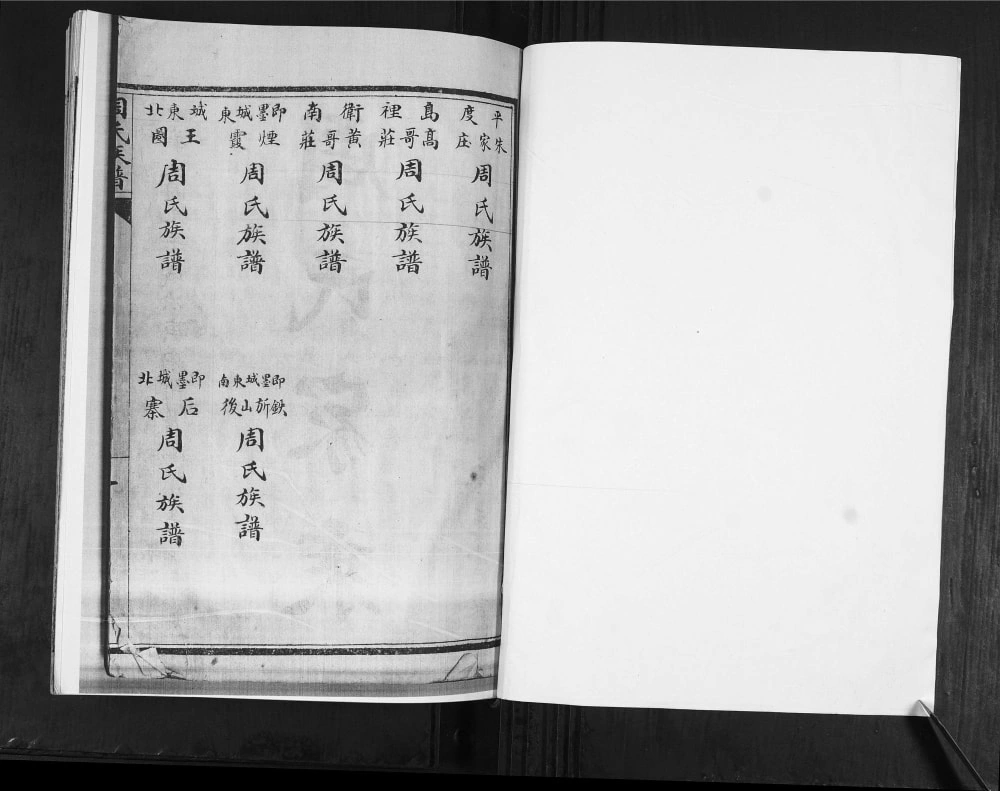 平度
朱家庄
周氏族譜
島裡
高哥莊
周氏族譜
衛南
黃哥莊
周氏族譜
即墨城東
煙霞
周氏族譜
即墨城東南
鉄旂山後
周氏族譜
城東北
王圈
周氏族譜
即墨城北
后寨
周氏族譜
周氏族譜